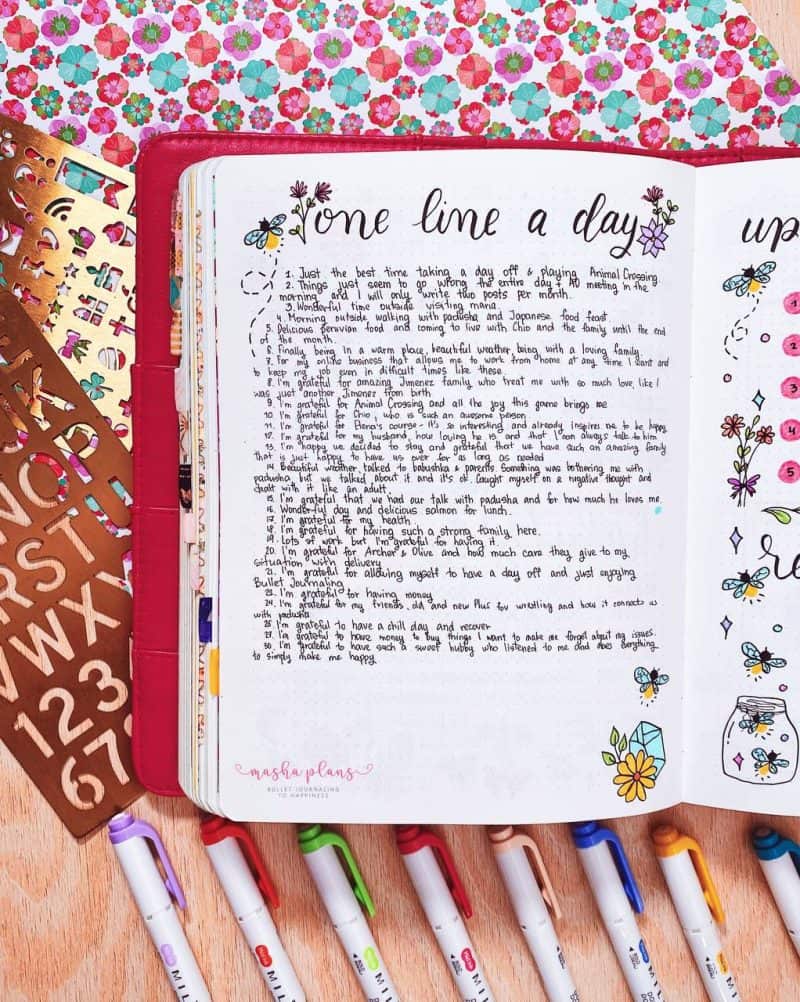 one line a day
1. Just the best time taking a day off & playing Animal Crossing
2. Things just seem to go wrong the entire day + AO meeting in the
morning and I will only write two posts per month.
3. Wonderful time outside visiting mama.
4. Morning outside walking with padusha and Japanese food feast
5. Delicious peruvian food and coming to live with Chio and the family until the end
of the month.
6. Finally being in a warm place, beautiful weather, being with a loving family.
7. For my online business that allows me to work from home at any time I want and
to keep my job even in difficult times like these.
8. I'm grateful for amazing Jimenez family, who treat me with so much love, like I
was just another Jimenez from birth
9. I'm grateful for Animal Crossing and all the joy this game brings me
10. I'm grateful for Chio, who is such an awesome person
11. I'm grateful for Elena's course - it's so interesting and already inspires me to be happy.
12. I'm grateful for my husband, how loving he is and that I can always talk to him
13. I'm happy we decided to stay and grateful that we have such an amazing family
that is just happy to have us over for as long as needed
14. Beautiful weather, talked to babushka & parents. Something was bothering me with
padusha, but we talked about it and it's ok. Caught myself on a negative thought and
dealt with it like an adult.
15. I'm grateful that we had our talk with padusha and for how much he loves me.
16. Wonderful day and delicious salmon for lunch.
17. I'm grateful for my health.
18. I'm grateful for having such a strong family here.
19. Lots of work but I'm grateful for having it.
20. I'm grateful for Archer & Olive and how much care they give to my
situation with delivery
21. I'm grateful for allowing myself to have a day off and just enjoying
Bullet Journaling
23. I'm grateful for having money
24. I'm grateful for my friends, old and new Plus for wrestling and how it connects us
with padusha
25. I'm grateful to have a chill day and recover
27. I'm grateful to have money to buy things I want to make me forget about my issues.
30. I'm grateful to have such a sweet hubby who listened to me and does everything
to simply make me happy
masha plans
BULLET JOURNALING
TO HAPPINESS
up
1
2
3
4
5
re
NOP
RST
VWX
123
67
MIL
MIL
MIL
MIL
MIL
MIL
MIL